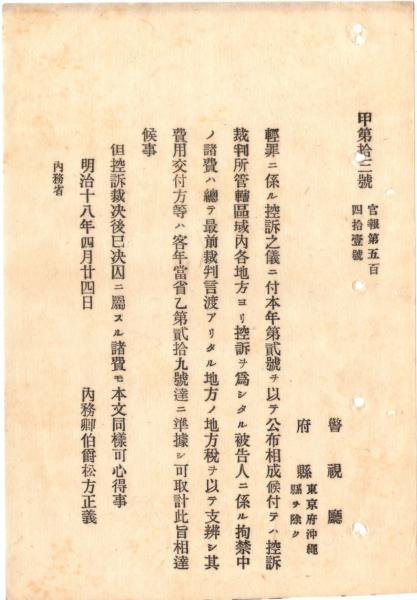 甲第拾三號
官報第五百
四拾壹號
警視廳
府縣
東京府沖繩
縣ヲ除ク
輕罪ニ係ル控訴之儀ニ付本年第貳號ヲ以テ公布相成候付テハ控訴
裁判所管轄區域內各地方ヨリ控訴ヲ爲シタル被告人ニ係ル拘禁中
ノ諸費ハ總テ最前裁判言渡アリタル地方ノ地方稅ヲ以テ支辨シ其
費用交付方等ハ客年當省乙第貳拾九號達ニ準據シ可取計此旨相達
候事
但控訴裁決後已決囚ニ屬スル諸費モ本文同樣可心得事
明治十八年四月廿四日
內務卿伯爵松方正義
內務省